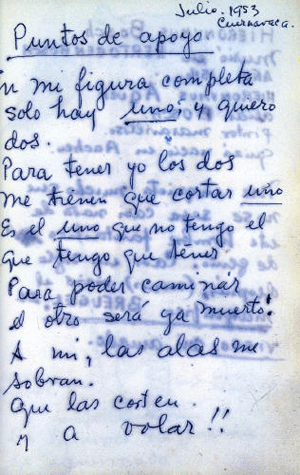 Julio. 1953
Cuernavaca.
Puntos de apoyo
En mi figura completa
solo hay uno; y quiero
dos.
Para tener yo los dos
me tienen que cortar uno
Es el uno que no tengo el
que tengo que tener
Para poder caminar
el otro será ya muerto!
A mi, las alas me
sobran.
Que las corten.
y a volar!!